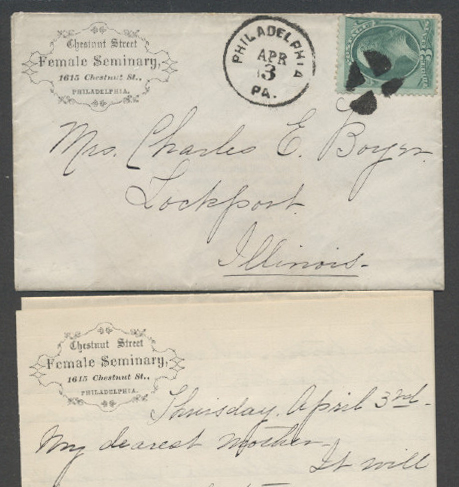 Chestnut Street
Female Seminary,
1615 Chestnut St.,
PHILADELPHIA.
PHILADELPHIA
APR
3
PA.
Mrs. Charles E. Boyer.
Lockport.
Illinois.
Chestnut Street
Female Seminary,
1615 Chestnut St.,
PHILADELPHIA.
Thursday, April 3rd.
My dearest Mother.
It will